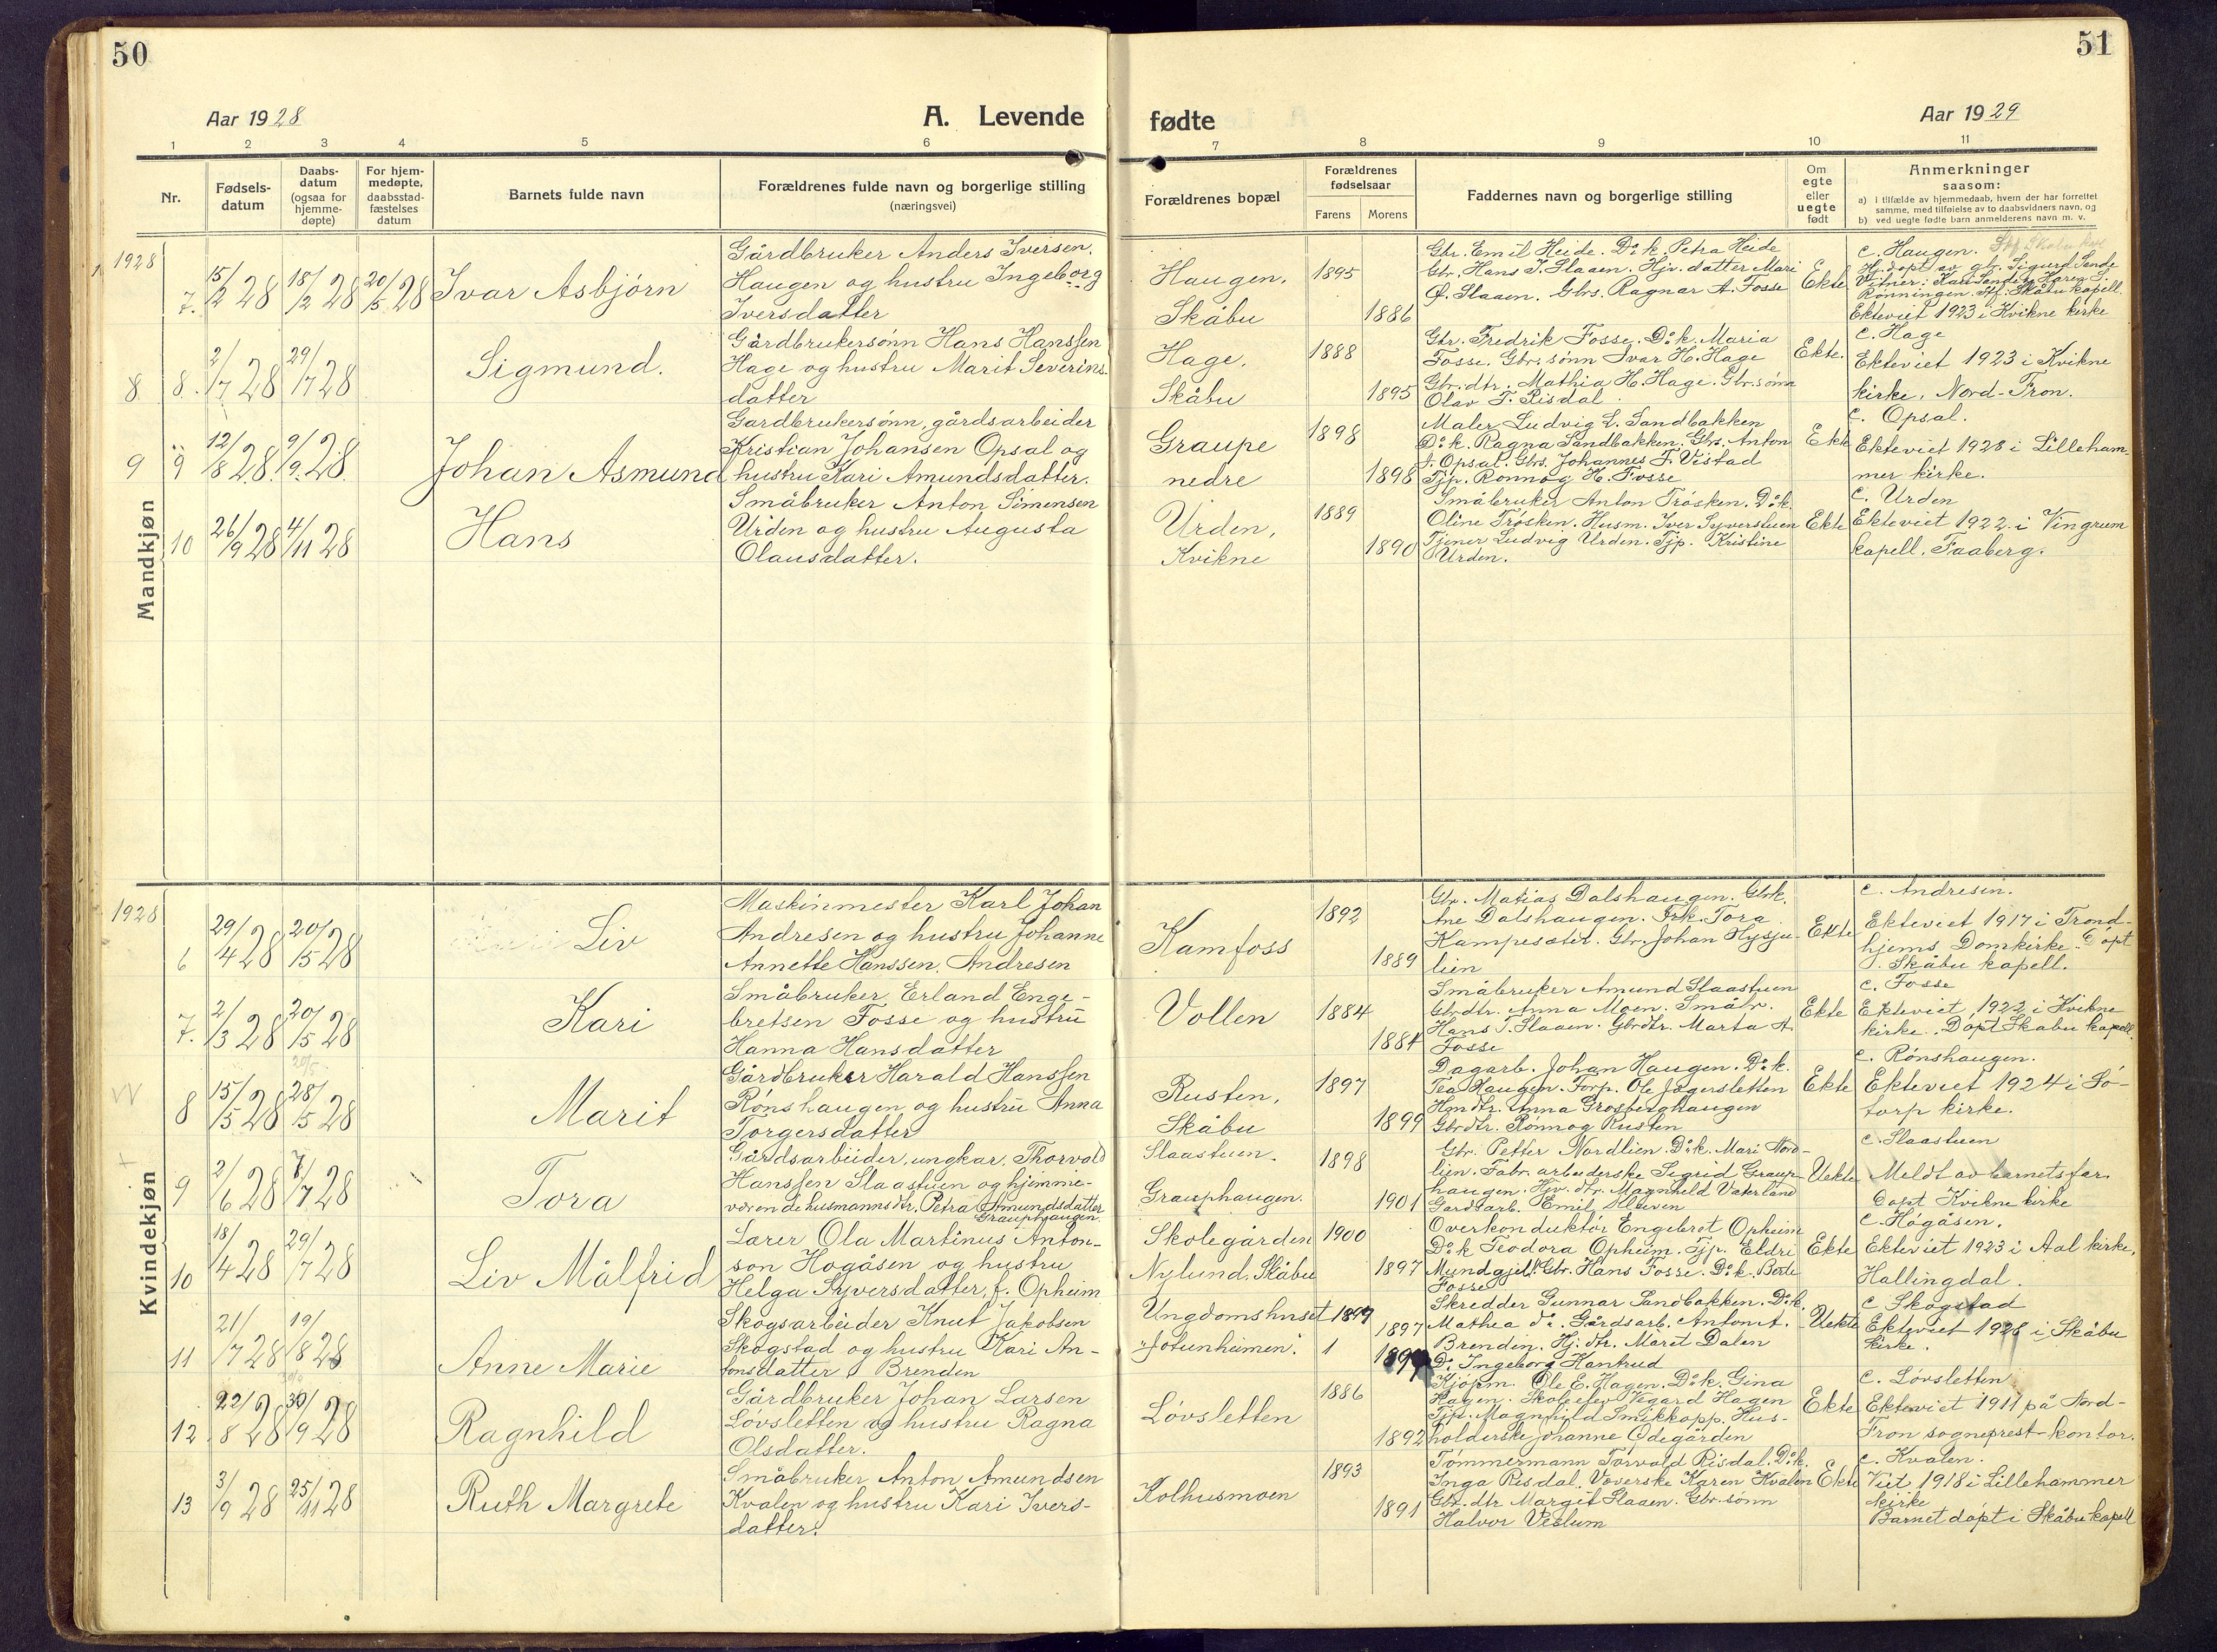 50
51
Aar 1928
A. Levende
fødte
Aar 1929
1 2 3 4 5 6 7 8 9 10 11
Nr.
Fødsels-
datum
Daabs-
datum
(ogsaa for
hjemme-
døpte)
For hjem-
medøpte,
daabsstad-
fæstelses
datum
Barnets fulde navn
Forældrenes fulde navn og borgerlige stilling
(næringsvei)
Forældrenes bopæl
Forældrenes
fødselsaar
Farens Morens
Faddernes navn og borgerlige stilling
Om
egte
eller
uegte
født
Anmerkninger
saasom:
a) i tilfælde av hjemmedaab, hvem der har forrettet
samme, med tilføielse av to daabsvidners navn, og
b) ved uegte fødte barn anmelderens navn m. v.
Mandkjøn
1928
7. 15/2 28 18/2 28 20/5 28 Ivar Asbjørn
Gårdbruker Anders Iversen
Haugen og hustru Ingeborg
Iversdatter
Haugen,
Skåbu
1895
1886
Gbr. Emil Heide. D: k. Petra Heide
Gbr. Hans J. Slaaen. Hjv. datter Mari
Ø. Slaaen. Gbrs. Ragnar A. Fosse
Ekte
c. Haugen.
Hj. døpt av gbr. Sigurd Sande
Vitner: Kari Sande, Karen S.
Rønningen. Stf. Skåbu kapell.
Ekteviet 1923 i Kvikne kirke
8 8. 2/7 28 29/7 28 Sigmund.
Gårdbrukersønn Hans Hanssen
Hage og hustru Marit Severins-
datter
Hage,
Skåbu
1888
1895
Gbr. Fredrik Fosse. D: k. Maria
Fosse. Gbr. sønn Ivar H. Hage
Gbr. dtr. Mathia H. Hage. Gbr. sønn
Olav T. Risdal
Ekte.
c. Hage
Ekteviet 1923 i Kvikne
kirke, Nord-Fron.
9 9 12/8 28. 9/9. 28. Johan Asmund
Gardbrukersønn, gårdsarbeider
Kristian Johansen Opsal og
hustru Kari Amundsdatter.
Graupe
nedre
1898
1898
Maler Ludvig L. Sandbakken
D: k. Ragna Sandbakken. Gbs. Anton
J. Opsal. Gbs. Johannes F. Vistad
Tjp. Rønnog H. Fosse
Ekte
c. Opsal.
Ekteviet 1928 i Lilleham-
mer kirke.
10 26/9 28 4/11 28 Hans
Småbruker Anton Simensen
Urden og hustru Augusta
Olausdatter.
Urden,
Kvikne
1889
1890
Småbruker Anton Trøsken. D: k.
Oline Trøsken. Husm. Iver Syverstuen
Tjener Ludvig Urden. Tjp. Kristine
Urden.
Ekte
c. Urden
Ekteviet 1922 i Vingrum
kapell, Faaberg.
Kvindekjøn
1928
6 29/4 28 20/5 28 Liv
Maskinmester Karl Johan
Andresen og hustru Johanne
Annette Hanssen, Andresen
Kamfoss
1892
1889
Gbr. Matias Dalshaugen. Gbrk.
Ane Dalshaugen. Frk. Tora
Kampesæter. Gbr. Johan Hysju-
lien
Ekte
c. Andresen.
Ekteviet 1917 i Trond-
hjems Domkirke. Døpt
i Skåbu kapell.
7. 2/3 28 20/5 28 Kari
Småbruker Erland Enge-
bretsen Fosse og hustru
Hanna Hansdatter
Vollen
1884
1884
Småbruker Amund Slaastuen
Gbrdtr. Anna Moen. Småbr.
Hans T. Slaaen. Gbrdtr. Marta A.
Fosse
Ekte
c. Fosse
Ekteviet 1922 i Kvikne
kirke. Døpt Skabu kapell.
8 15/5 28 28/5 28 Marit
Gårdbruker Harald Hanssen
Rønshaugen og hustru Anna
Torgersdatter
Rusten,
Skåbu
1897
1899
Dagarb. Johan Haugen. D: k.
Tea Haugen. Forp. Ole Jøgersletten
Hmdtr. Anna Grosberghaugen
Gbrdtr. Rønnog Rusten
Ekte
c. Rønshaugen.
Ekteviet 1924 i Sø-
dorp kirke.
9 2/6 28 7/7 28 Tora
Gårdsarbeider, ungkar, Thorvald
Hanssen Slaastuen og hjemme-
værende husmanns dtr. Petra Amundsdatter
Grauphaugen.
Slaastuen.
Grauphaugen.
1898
1901
Gbr. Petter Nordlien. D: k. Mari Nord-
lien. Fabr. arbeiderske Sigrid Graup-
haugen. Hjv. dtr. Magnhild Vaterland
Gardsarb. Emil Sløiven
Uekte
c. Slaastuen
Meldt av barnets far.
Døpt Kvikne kirke
10 18/4 28 29/7 28 Liv Målfrid
Lærer Ola Martinus Anton-
son Høgåsen og hustru
Helga Syversdatter, f. Opheim
Skolegården
Nylund, Skåbu
1900
1897
Overkonduktør Engebret Opheim
D: k Teodora Opheim. Tjp. Eldri
Mundgjel. Gbr. Hans Fosse. D: k. Berte
Fosse
Ekte
c. Høgåsen,
Ekteviet 1923 i Aal kirke,
Hallingdal.
11 21/7 28 19/8 28 Anne Marie
Skogsarbeider Knut Jakobsen
Skogstad og hustru Kari An-
tonsdatter Brenden
Ungdomshuset
"Jotunheimen".
1897
Skredder Gunnar Sandbakken. D: k.
Mathea do. Gårdsarb. Anton A.
Brenden. Hj. dtr. Marit Dalen
D: Ingeborg Hantrud
Uekte
c Skogstad
Ekteviet 1928 i Skåbu
kirke.
12 22/8 28 30/9 28 Ragnhild
Gårdbruker Johan Larsen
Løvsletten og hustru Ragna
Olsdatter.
Løvsletten
1886
1892
Kjøpm. Ole E. Hagen. D: k. Gina
Hagen. Skoleelev Vegard Hagen
Tjp. Magnhild Smikkopp. Hus-
holderske Johanne Ødegården
Ekte
c. Løvsletten
Ekteviet 1911 på Nord-
Fron sogneprest-kontor.
13 3/9 28 25/11 28 Ruth Margrete
Småbruker Anton Amundsen
Kvalen og hustru Kari Ivers-
datter.
Kolhusmoen
1893
1891
Tømmermann Torvald Risdal. D: k.
Inga Risdal. Væverske Karen Kvalen
Gbr. dtr Margit Slaaen. Gbr. sønn
Halvor Veslum
Ekte
c. Kvalen.
Viet 1918 i Lillehammer
kirke
Barnet døpt i Skåbu kapell